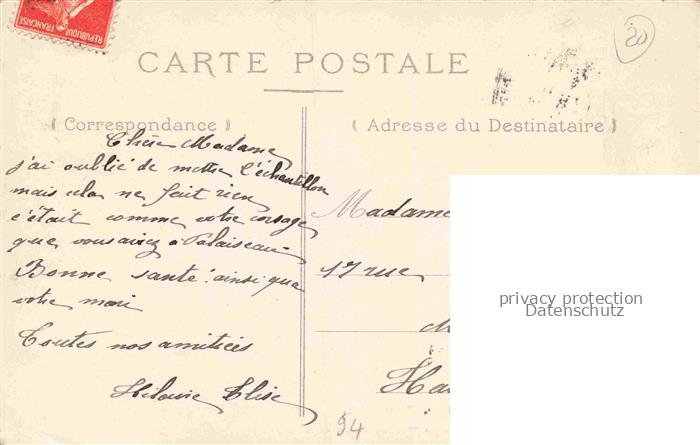 REPUBLIQUE FRANÇAISE
20
CARTE POSTALE
( Correspondance )
( Adresse du Destinataire )
Chère Madame
j'ai oublié de mettre l'échantillon
mais cela ne fait rien
c'était comme votre corsage
que vous aviez à Palaiseau
Bonne santé ainsi que
votre mari
Toutes nos amitiés
Hilaire Elise
Madame
17 rue
privacy protection
Datenschutz
94